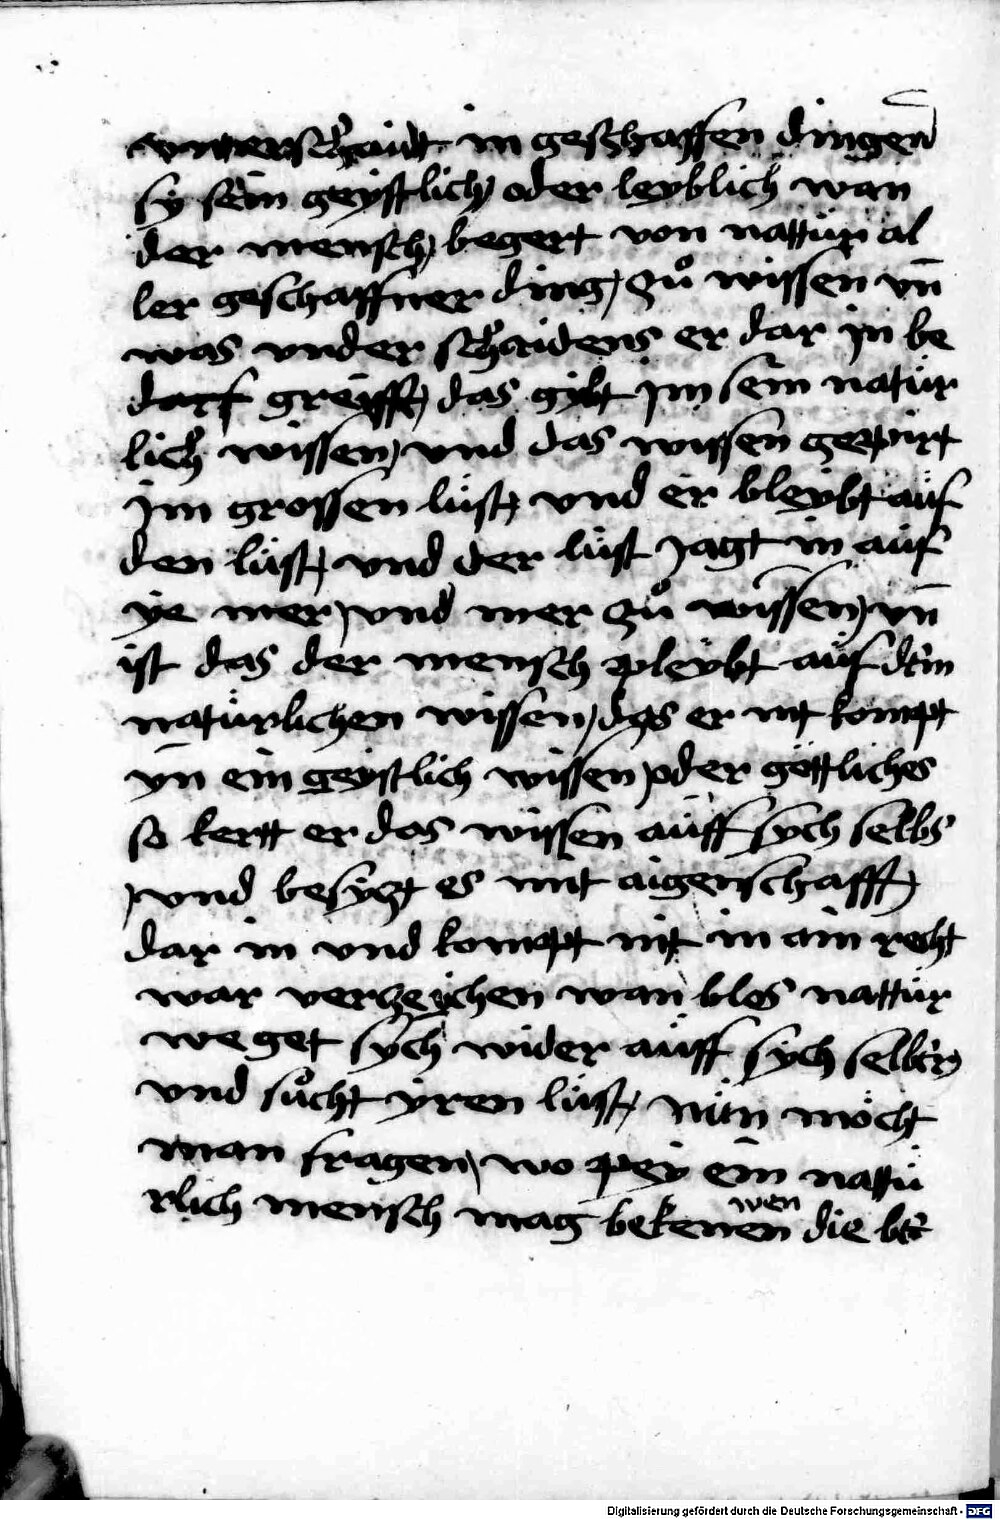 vnterschaidt in geschaffen dingen
sy sein geystlich oder leyblich wan
der mensch begert von nattür al
ler geschaffner ding zů wissen vn̄
was vnder schaidens er dar in be
darf greyfft das gibt im sein natür
lich wissen vnd das wissen gepürt
im grossen lüst vnd er bleybt aüf
den lüst vnd der lüst jagt in aüf
ye mer vnd mer zů wissen vn̄
ist das der mensch pleybt aüf dem
natürlichen wissen das er nit kompt
yn ein geystlich wissen oder göttliches
so kertt er das wissen aüff sych selbs
vnd besyczt es mit aigenschafft
dar in vnd kompt nit in ain recht
war verzeychen wan blos nattür
we get sych wider aüff sych selber
vnd sůcht yren lüst nün möcht
man fragen wo pey ein nattü
rlich mensch mag bekenen die
wen